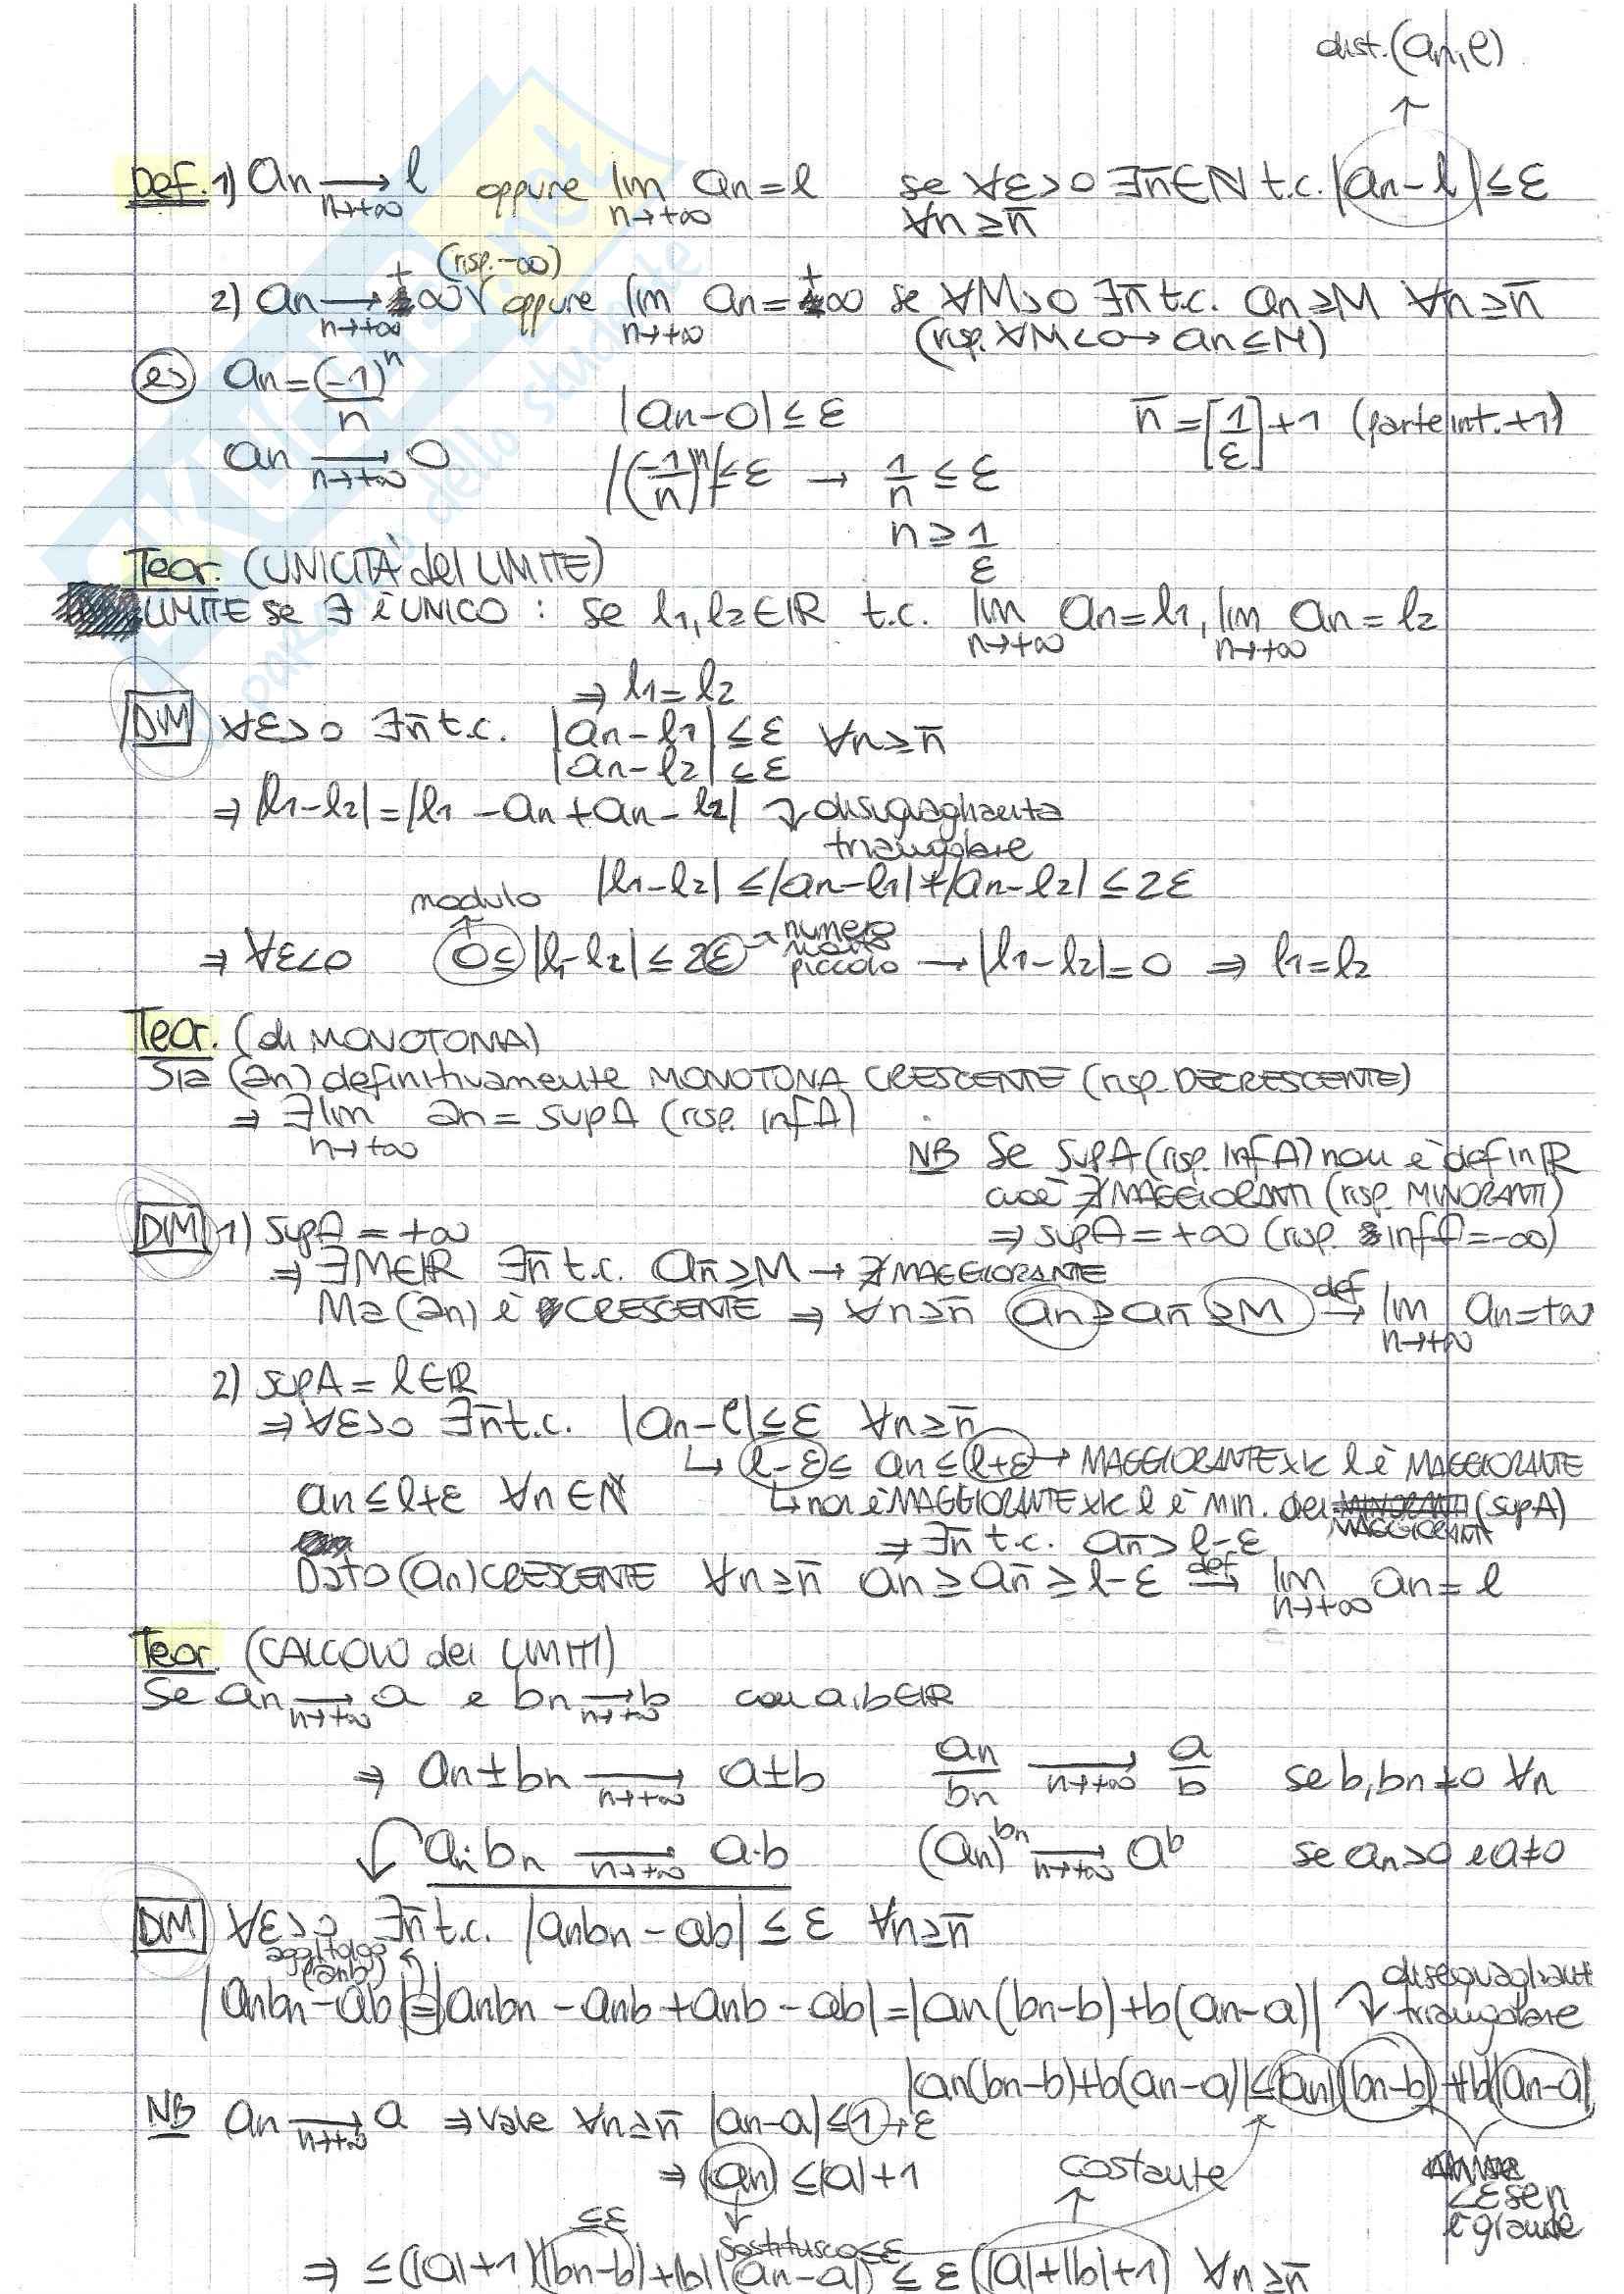 dist.(an,l)
↑
Def. 1) an →n→+∞ l oppure lim n→+∞ an = l se ∀ε>0 ∃n̄∈N t.c. |an-l| ≤ ε
∀n ≥ n̄
(risp. -∞)
2) an →n→+∞ +∞ oppure lim n→+∞ an = +∞ se ∀M>0 ∃n̄ t.c. an ≥ M ∀n ≥ n̄
(risp. ∀M<0 → an ≤ M)
es an = (-1)^n/n
|an-0| ≤ ε n̄ = [1/ε]+1 (parte int.+1)
an →n→+∞ 0 |(-1/n)^n| ≤ ε → 1/n ≤ ε
n ≥ 1/ε
Teor. (UNICITÀ del LIMITE)
LIMITE se ∃ è UNICO : se l1, l2 ∈ IR t.c. lim n→+∞ an = l1, lim n→+∞ an = l2
⇒ l1 = l2
DIM ∀ε>0 ∃n̄ t.c. |an-l1| ≤ ε ∀n ≥ n̄
|an-l2| ≤ ε
⇒ |l1-l2| = |l1-an+an-l2| ↴ disuguaglianza
triangolare
|l1-l2| ≤ |an-l1|+|an-l2| ≤ 2ε
modulo
⇒ ∀ε<0 0 ≤ |l1-l2| ≤ 2ε → numero molto piccolo → |l1-l2| = 0 ⇒ l1 = l2
Teor. (di MONOTONIA)
Sia (an) definitivamente MONOTONA CRESCENTE (risp. DECRESCENTE)
⇒ ∃ lim n→+∞ an = supA (risp. infA)
NB Se supA (risp. infA) non è def in IR
cioè ∄ MAGGIORANTI (risp. MINORANTI)
⇒ supA = +∞ (risp. infA = -∞)
DIM 1) supA = +∞
⇒ ∃M∈IR ∃n̄ t.c. an̄ ≥ M → ∄ MAGGIORANTE
Ma (an) è CRESCENTE ⇒ ∀n ≥ n̄ an ≥ an̄ ≥ M def→ lim n→+∞ an = +∞
2) supA = l ∈ IR
⇒ ∀ε>0 ∃n̄ t.c. |an-l| ≤ ε ∀n ≥ n̄
↳ l-ε ≤ an ≤ l+ε → MAGGIORANTE xk l è MAGGIORANTE
an ≤ l+ε ∀n ∈ N ↳ non è MAGGIORANTE xk l è min. dei MAGGIORANTI (supA)
⇒ ∃n̄ t.c. an̄ > l-ε
Dato (an) CRESCENTE ∀n ≥ n̄ an ≥ an̄ ≥ l-ε def→ lim n→+∞ an = l
Teor. (CALCOLO dei LIMITI)
Se an →n→+∞ a e bn →n→+∞ b con a,b∈IR
⇒ an±bn →n→+∞ a±b an/bn →n→+∞ a/b se b,bn≠0 ∀n
an·bn →n→+∞ a·b (an)^bn →n→+∞ a^b se an>0 e a≠0
DIM ∀ε>0 ∃n̄ t.c. |anbn-ab| ≤ ε ∀n ≥ n̄
agg/tolgo
(anb)
|anbn-ab| = |anbn-anb+anb-ab| = |an(bn-b)+b(an-a)| ↴ disuguaglianza triangolare
|an(bn-b)+b(an-a)| ≤ |an||bn-b|+|b||an-a|
NB an →n→+∞ a ⇒ vale ∀n ≥ n̄ |an-a| ≤ 1 → ε
⇒ |an| ≤ |a|+1 costante
<ε se n
è grande
≤ε sostituisco ≤ε
⇒ ≤ (|a|+1)|bn-b|+|b||an-a| ≤ ε(|a|+|b|+1) ∀n ≥ n̄